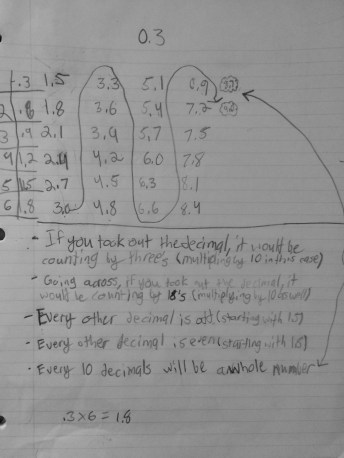 0.3
.3 1.5 3.3 5.1 6.9
2 .6 1.8 3.6 5.4 7.2
3 .9 2.1 3.9 5.7 7.5
4 1.2 2.4 4.2 6.0 7.8
5 1.5 2.7 4.5 6.3 8.1
6 1.8 3.0 4.8 6.6 8.4
- If you took out the decimal, it would be
counting by three's (multiplying by 10 in this case)
- Going across, if you took out the decimal, it
would be counting by 18's (multiplying by 10 as well)
- Every other decimal is odd (starting with 1.5)
- Every other decimal is even (starting with 1.8)
- Every 10 decimals will be a whole number
.3 x 6 = 1.8